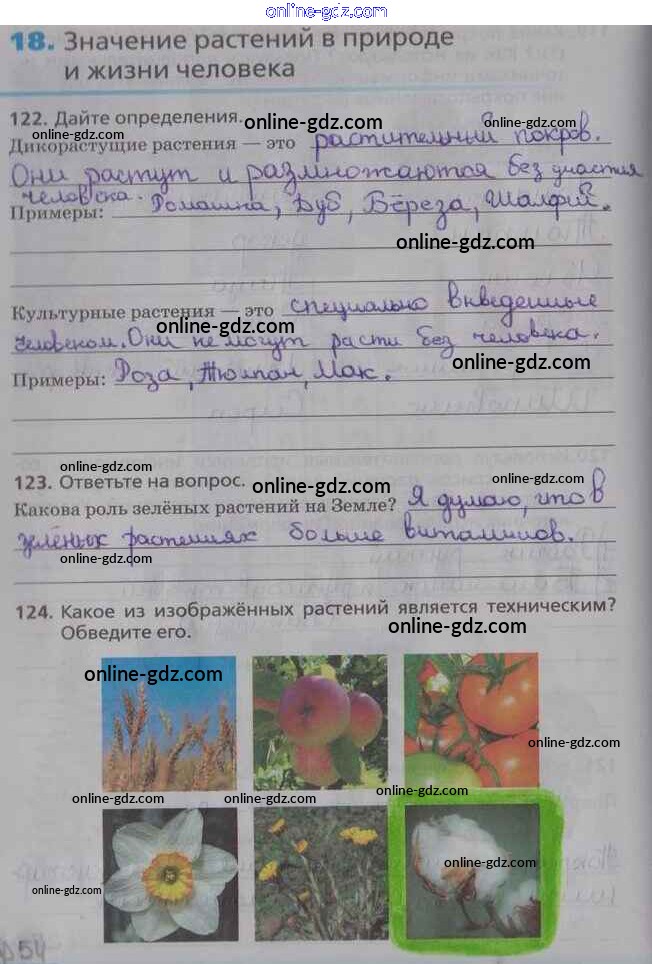 online-gdz.com
18. Значение растений в природе
и жизни человека
122. Дайте определения.
online-gdz.com
online-gdz.com
Дикорастущие растения — это растительный покров.
Они растут и размножаются без участия
человека.
Примеры: Ромашка, Дуб, Берёза, Шалфей.
online-gdz.com
Культурные растения — это специально внведенные
online-gdz.com
человеком. Они не могут расти без человека.
online-gdz.com
Примеры: Роза, Тюлпан, Мак.
online-gdz.com
123. Ответьте на вопрос.
online-gdz.com
online-gdz.com
Какова роль зелёных растений на Земле? Я думаю, что в
зелёных растениях больше витаминов.
online-gdz.com
124. Какое из изображённых растений является техническим?
Обведите его.
online-gdz.com
online-gdz.com
online-gdz.com
online-gdz.com
online-gdz.com
online-gdz.com
online-gdz.com
online-gdz.com
54